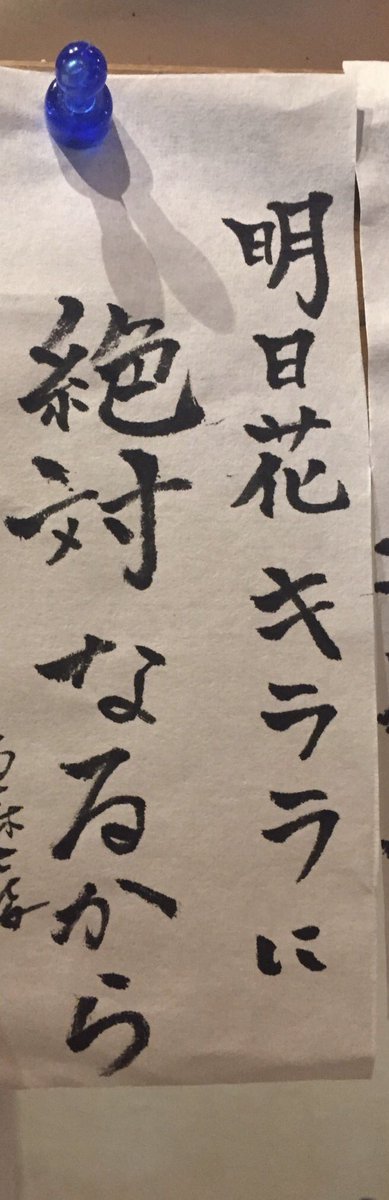 明日花キララに
絶対なるから